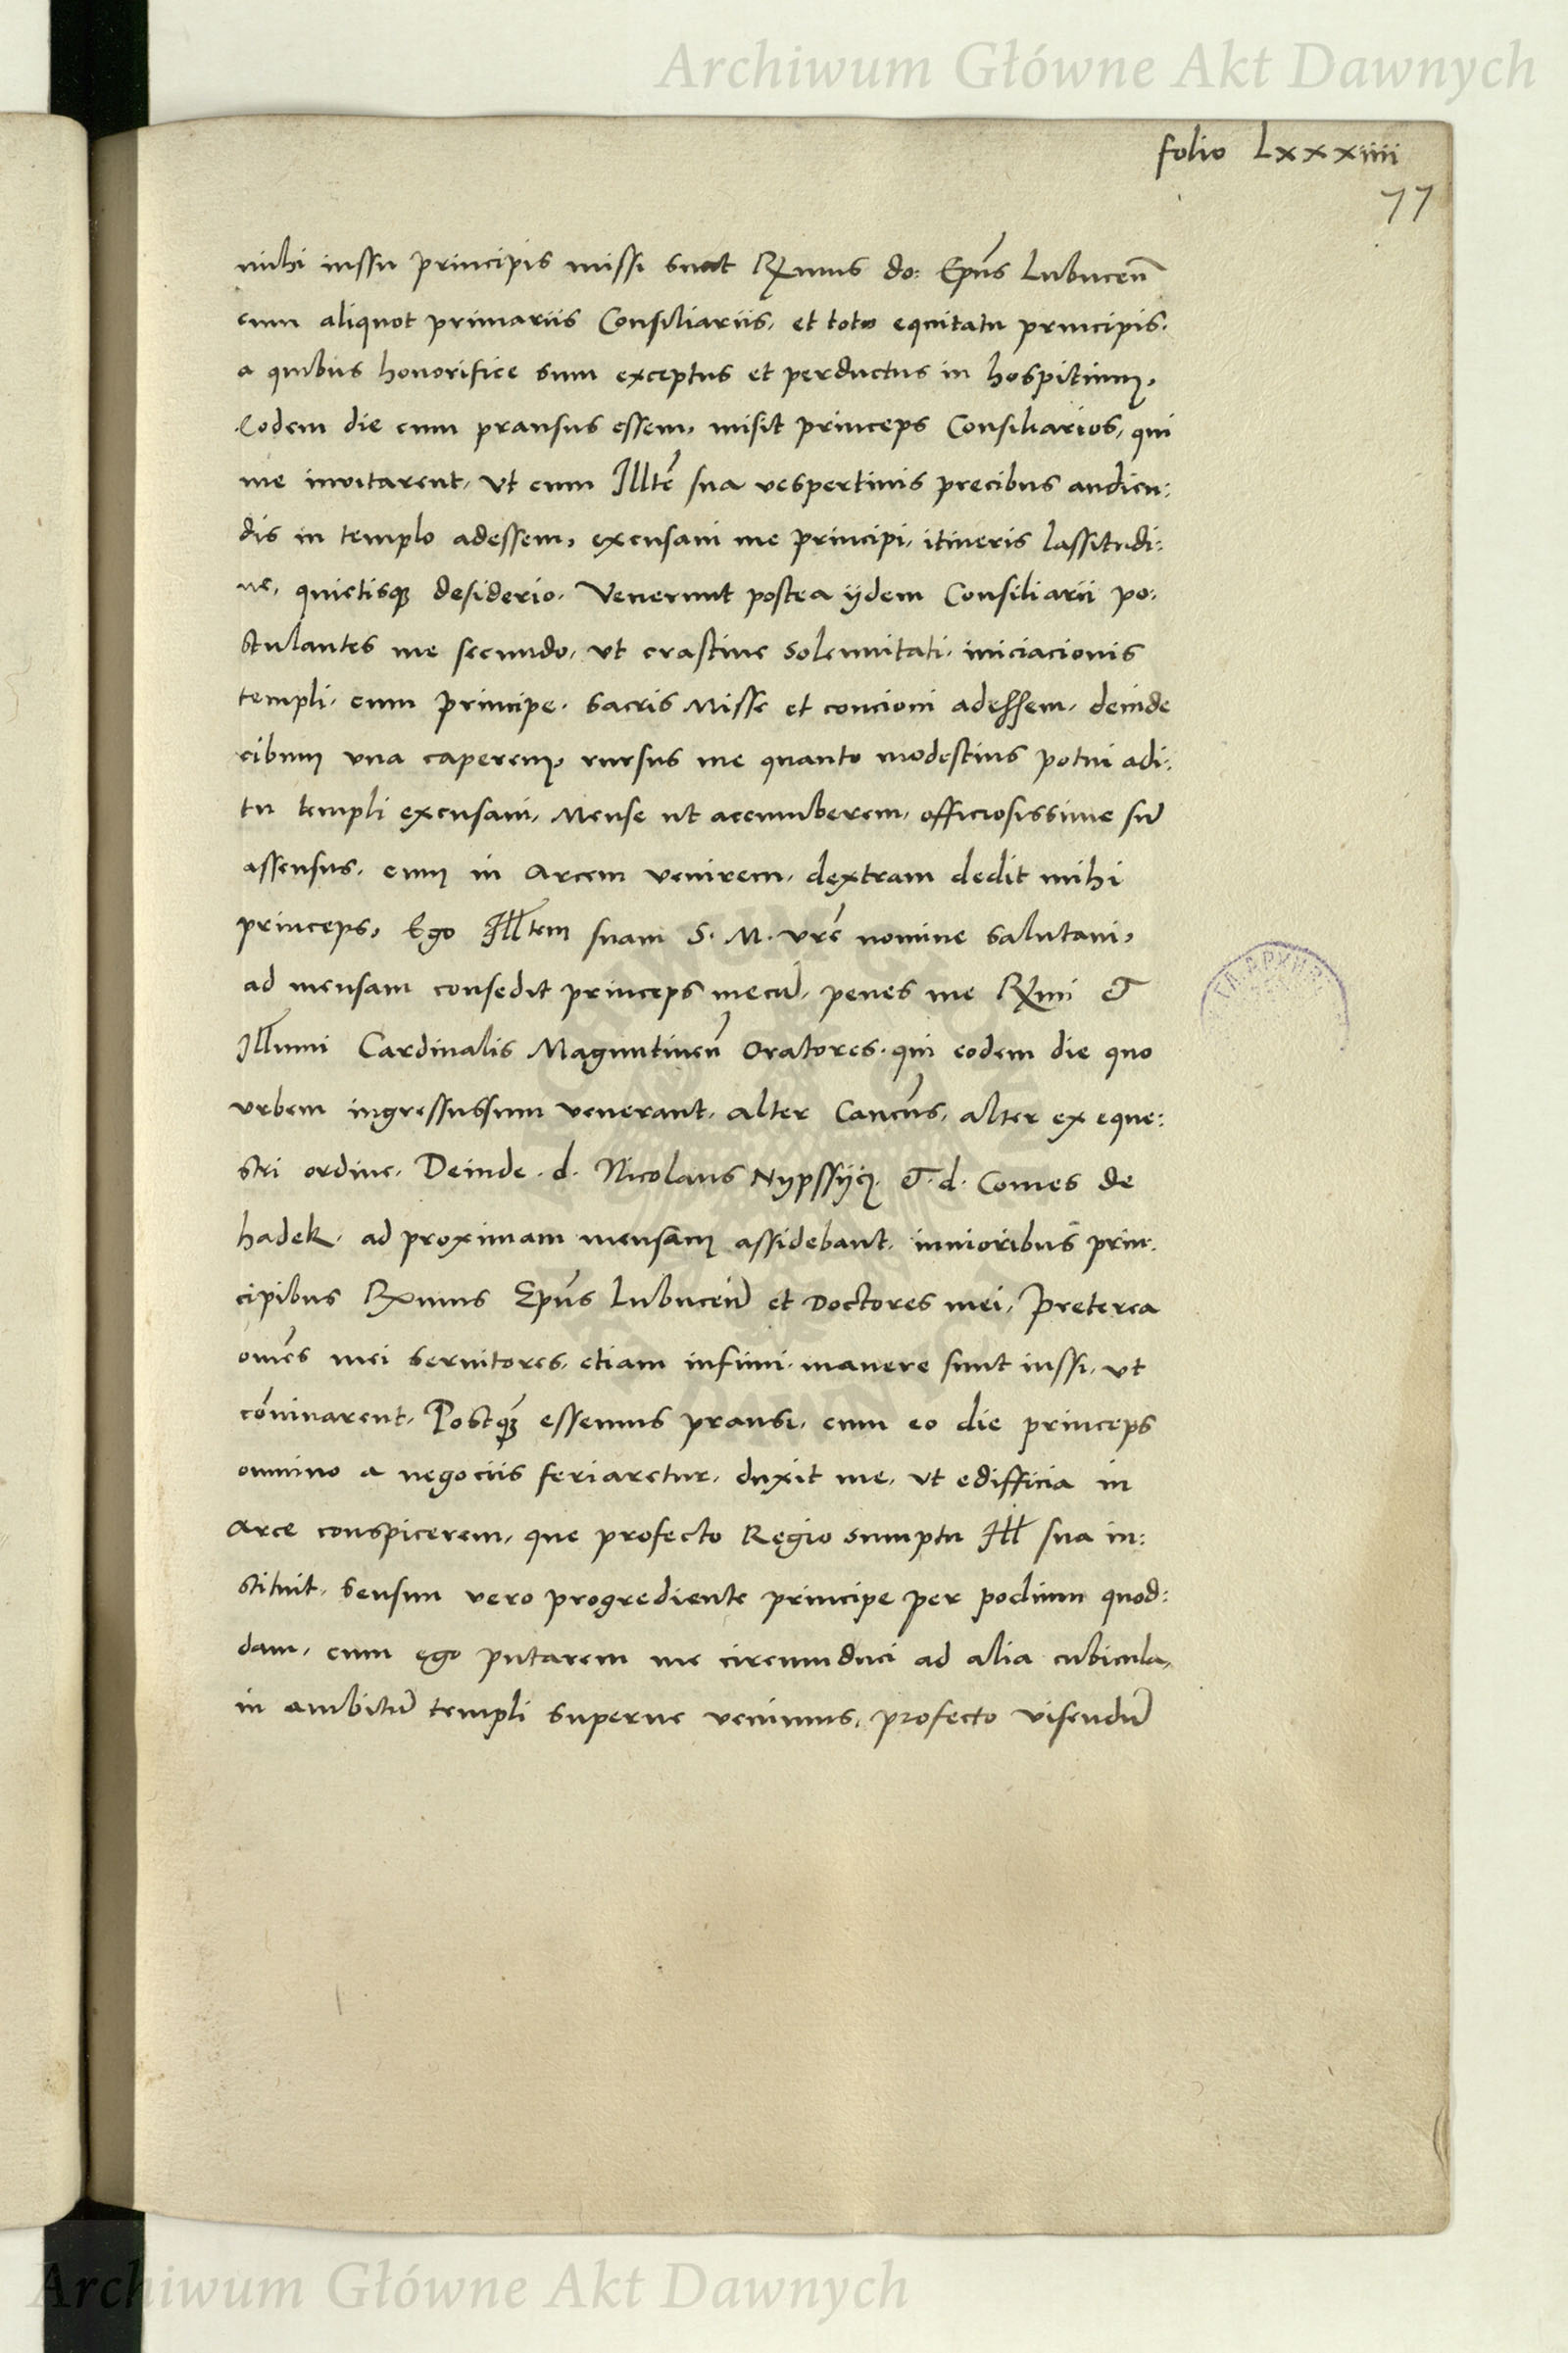 Archiwum Główne Akt Dawnych
folio Lxxxiiii
77
mihi iussu principis missi sunt Rxmus do: Epūs Lubuceñ
cum aliquot primariis Consiliariis, et toto equitatu principis.
a quibus honorifice sum exceptus et perductus in hospitium,
Eodem die cum pransus essem, misit princeps Consiliarios, qui
me invitarent, vt cum Illtē sua vespertinis precibus audien:
dis in templo adessem, excusavi me principi, itineris lassitudi:
ne, quietisqꝫ desiderio. Venerunt postea ijdem Consiliarii po:
stulantes me secundo, vt crastine solennitati, iniciacionis
templi, cum principe, sacris Misse et concioni adessem, deinde
cibum vna caperem, rursus me quanto modestius potui adi:
tu templi excusavi, Mense ut accumberem, officiosissime sū
assensus, cum in Arcem venirem, dextram dedit mihi
princeps, Ego Illtem suam S. M. vrē nomine salutavi,
ad mensam consedit princeps mecū, penes me Rxmi &
Illmmi Cardinalis Maguntineñ Oratores, qui eodem die quo
vrbem ingressussum venerant, alter Cancūs, alter ex eque:
stri ordine, Deinde d. Nicolaus Nypssÿcz. & d. Comes de
hadek, ad proximam mensam assidebant, iunioribus prin:
cipibus Rxmus Epūs Lubuceñ et Doctores mei, Preterea
omēs mei servitores, etiam infimi, manere sunt iussi, ut
cōvivarent, Postqꝫ essemus pransi, cum eo die princeps
omnino a negociis feriaretur, duxit me, vt edifficia in
Arce conspicerem, que profecto Regio sumptu Ill sua in:
stituit, sensim vero progrediente principe per podium quod:
dam, cum ego putarem me circumduci ad alia cubicula,
in ambitū templi superne venimus, profecto visendū
Archiwum Główne Akt Dawnych